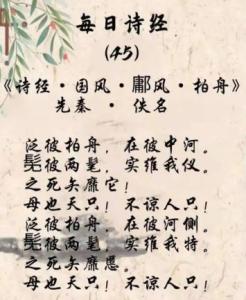 每日诗经
(45)
《诗经·国风·鄘风·柏舟》
先秦·佚名
泛彼柏舟，在彼中河。
髧彼两髦，实维我仪。
之死矢靡它！
母也天只！不谅人只！
泛彼柏舟，在彼河侧。
髧彼两髦，实维我特。
之死矢靡慝。
母也天只！不谅人只！